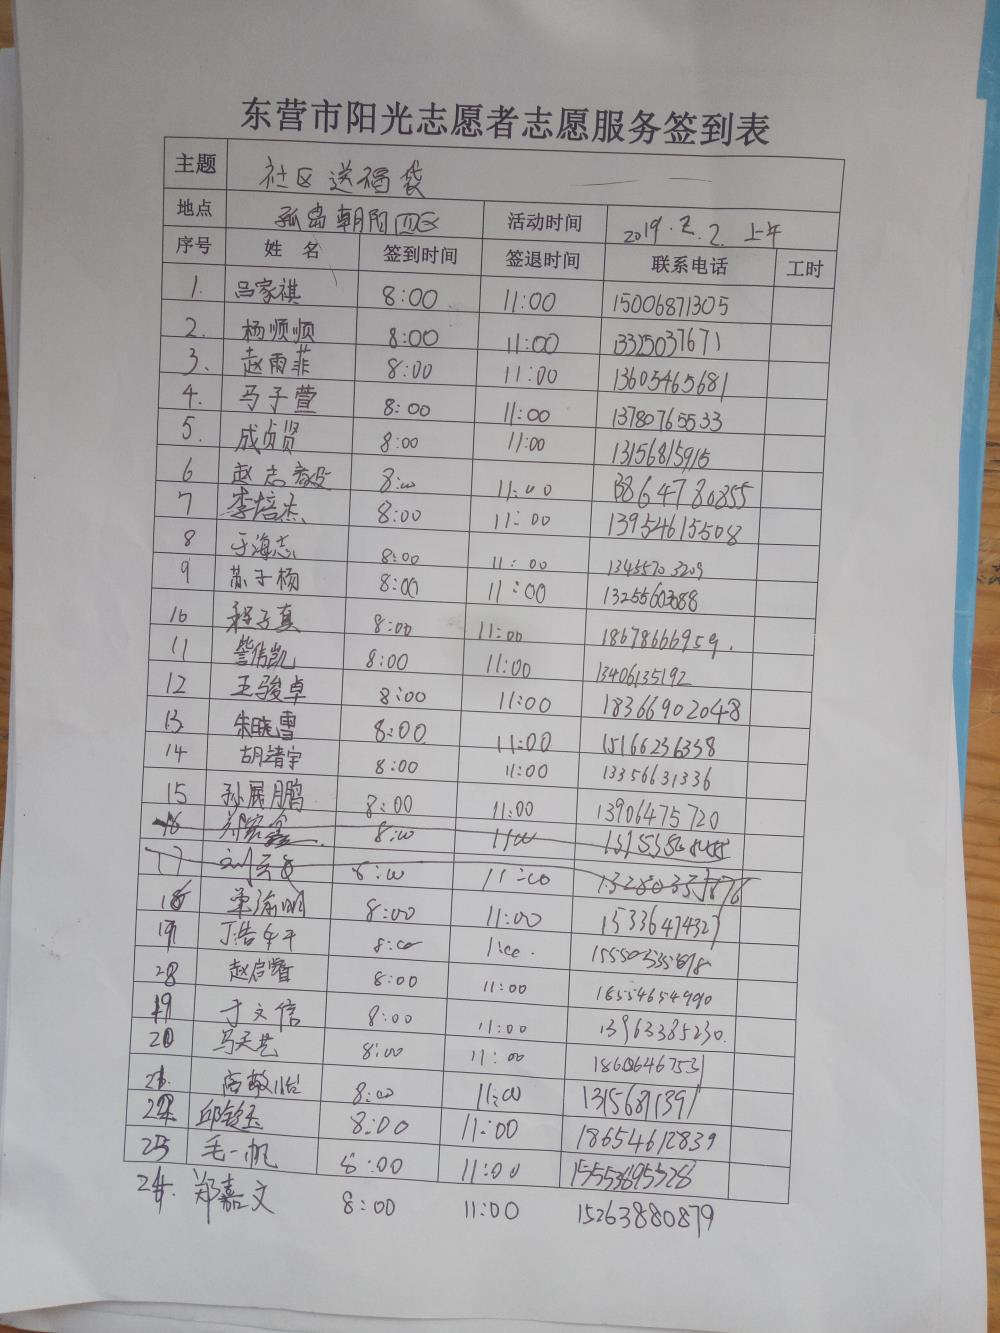 东营市阳光志愿者志愿服务签到表
主题 社区送福袋
地点 孤岛朝阳四区 活动时间 2019.2.2. 上午
序号 姓名 签到时间 签退时间 联系电话 工时
1. 吕家祺 8:00 11:00 15006871305
2. 杨顺顺 8:00 11:00 13325037671
3. 赵雨菲 8:00 11:00 13605465681
4. 马子萱 8:00 11:00 13780765533
5. 成贞贤 8:00 11:00 13156815915
6 赵志毅 8:00 11:00 13864780855
7 李培杰 8:00 11:00 13954615508
8 于海志 8:00 11:00 13455703209
9 苏子杨 8:00 11:00 13255603088
10 程子真 8:00 11:00 18678666959.
11 訾伟凯 8:00 11:00 13406135192
12 王骏卓 8:00 11:00 18366902048
13 朱晓雪 8:00 11:00 15166236338
14 胡靖宇 8:00 11:00 13356631336
15 孙展鹏 8:00 11:00 13906475720
16 8:00 11:00
17 8:00 11:00
18 8:00 11:00 15336474327
19 丁浩 8:00 1:00.
20 赵启睿 8:00 11:00 18554654990
19 于文信 8:00 11:00 13963385230.
20 马天艺 8:00 11:00 18606467531
21. 8:00 11:00 13156871391
22 邱钰玉 8:00 11:00 18654612839
23 毛一帆 8:00 11:00 15553695328
24. 郑嘉文 8:00 11:00 15263880879